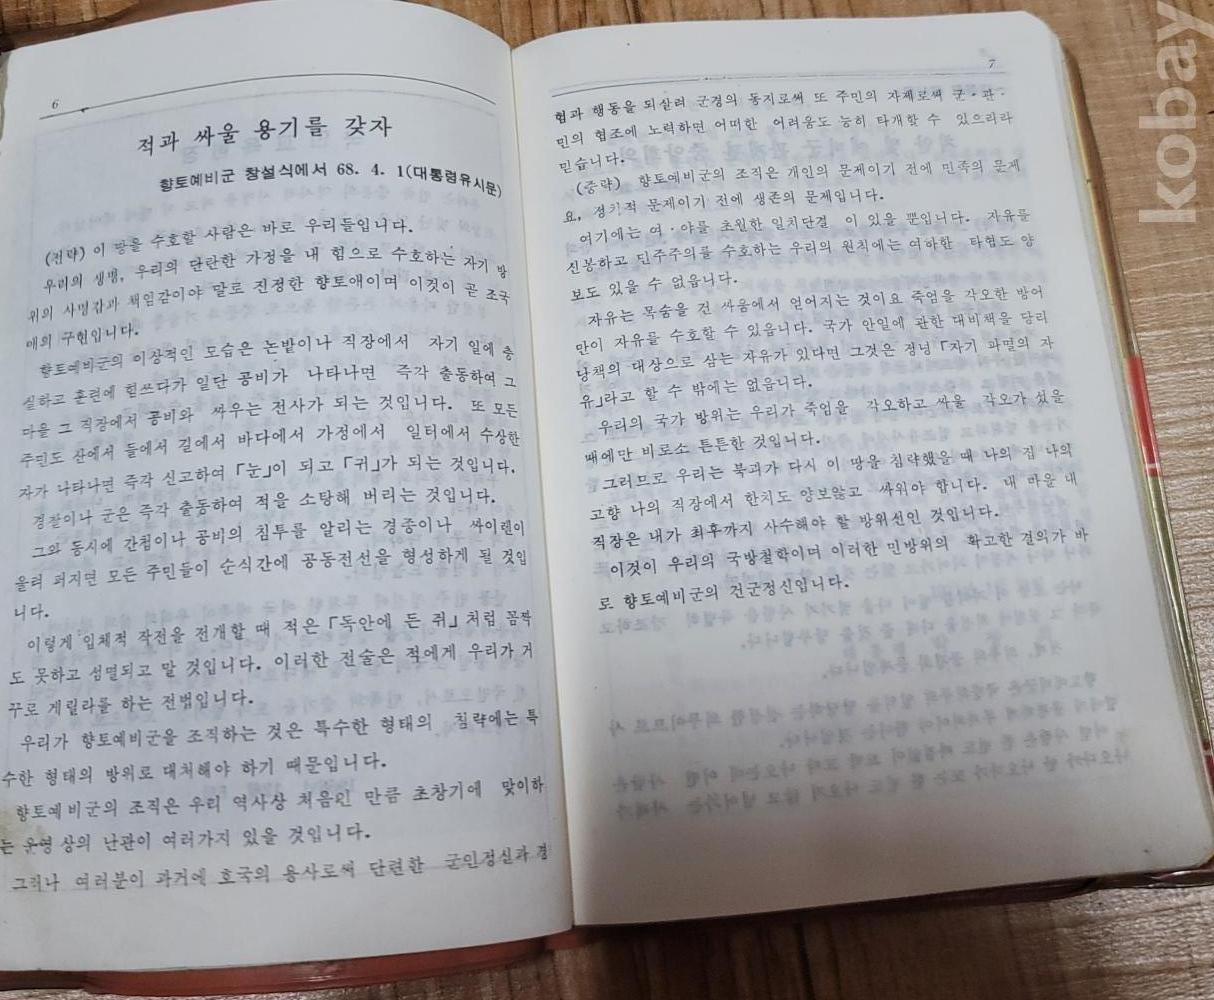 6
적과 싸울 용기를 갖자
향토예비군 창설식에서 68. 4. 1(대통령유시문)
(전략) 이 땅을 수호할 사람은 바로 우리들입니다.
우리의 생명, 우리의 단란한 가정을 내 힘으로 수호하는 자기 방
위의 사명감과 책임감이야 말로 진정한 향토애이며 이것이 곧 조국
애의 구현입니다.
향토예비군의 이상적인 모습은 논밭이나 직장에서 자기 일에 충
실하고 훈련에 힘쓰다가 일단 공비가 나타나면 즉각 출동하여 그
마을 그 직장에서 공비와 싸우는 전사가 되는 것입니다. 또 모든
주민도 산에서 들에서 길에서 바다에서 가정에서 일터에서 수상한
자가 나타나면 즉각 신고하여 「눈」이 되고 「귀」가 되는 것입니다.
경찰이나 군은 즉각 출동하여 적을 소탕해 버리는 것입니다.
그와 동시에 간첩이나 공비의 침투를 알리는 경종이나 싸이렌이
울려 퍼지면 모든 주민들이 순식간에 공동전선을 형성하게 될 것입
니다.
이렇게 입체적 작전을 전개할 때 적은 「독안에 든 쥐」처럼 꼼짝
도 못하고 섬멸되고 말 것입니다. 이러한 전술은 적에게 우리가 거
꾸로 게릴라를 하는 전법입니다.
우리가 향토예비군을 조직하는 것은 특수한 형태의 침략에는 특
수한 형태의 방위로 대처해야 하기 때문입니다.
향토예비군의 조직은 우리 역사상 처음인 만큼 초창기에 맞이하
는 운영상의 난관이 여러가지 있을 것입니다.
그러나 여러분이 과거에 호국의 용사로써 단련한 군인정신과 경
7
험과 행동을 되살려 군경의 동지로써 또 주민의 자제로써 군·관·
민의 협조에 노력하면 어떠한 어려움도 능히 타개할 수 있으리라
믿습니다.
(중략) 향토예비군의 조직은 개인의 문제이기 전에 민족의 문제
요, 정치적 문제이기 전에 생존의 문제입니다.
여기에는 여·야를 초월한 일치단결 이 있을 뿐입니다. 자유를
신봉하고 민주주의를 수호하는 우리의 원칙에는 여하한 타협도 양
보도 있을 수 없읍니다.
자유는 목숨을 건 싸움에서 얻어지는 것이요 죽엄을 각오한 방어
만이 자유를 수호할 수 있읍니다. 국가 안일에 관한 대비책을 당리
당책의 대상으로 삼는 자유가 있다면 그것은 정녕 「자기 파멸의 자
유」라고 할 수 밖에는 없읍니다.
우리의 국가 방위는 우리가 죽엄을 각오하고 싸울 각오가 섰을
때에만 비로소 튼튼한 것입니다.
그러므로 우리는 북괴가 다시 이 땅을 침략했을 때 나의 집 나의
고향 나의 직장에서 한치도 양보않고 싸워야 합니다. 내 마을 내
직장은 내가 최후까지 사수해야 할 방위선인 것입니다.
이것이 우리의 국방철학이며 이러한 민방위의 확고한 결의가 바
로 향토예비군의 건군정신입니다.
kobay